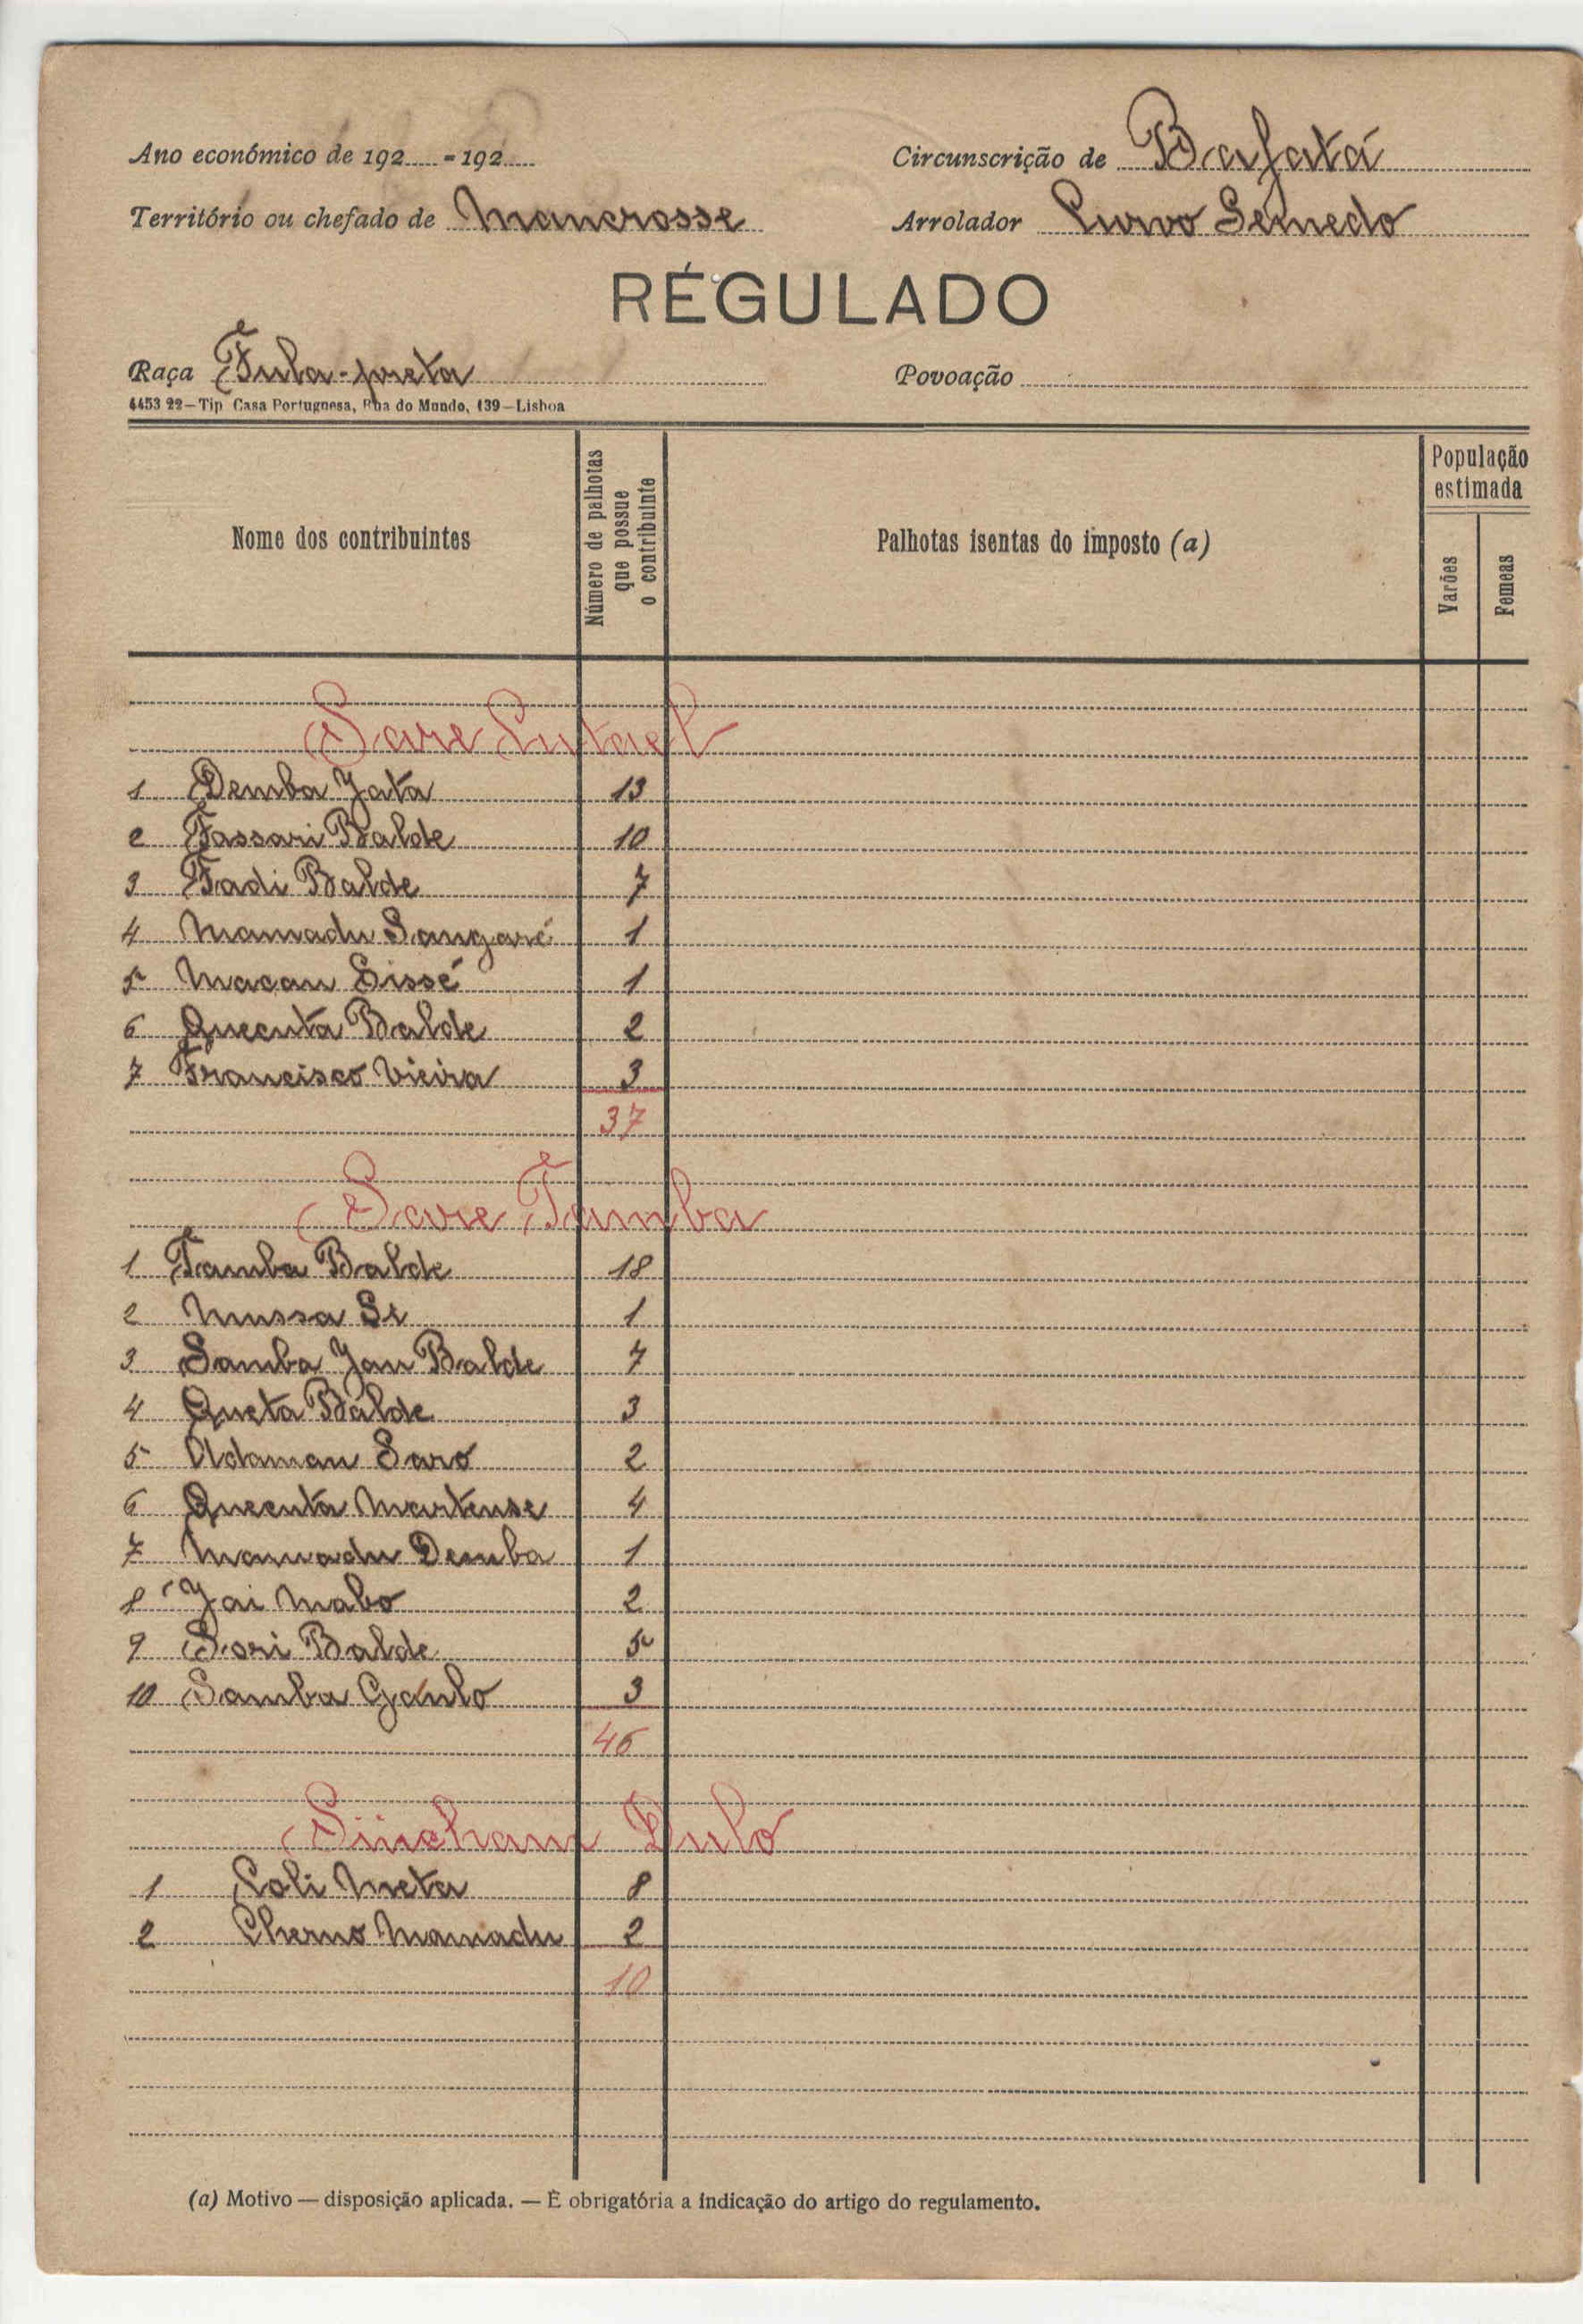 Ano económico de 192..... - 192.....
Circunscrição de Bafatá
Território ou chefado de Mancrosse
Arrolador Curvo Semedo
RÉGULADO
Raça Fula-preta
Povoação
4453 22—Tip Casa Portuguesa, Rua do Mundo, 139—Lisboa
Nome dos contribuintes
Número de palhotas que possue o contribuinte
Palhotas isentas do imposto (a)
População estimada
Varões
Femeas
Sare
1 Demba Jata 13
2 Tassari Balde 10
3 Tadi Balde 7
4 Mamadu Sangaré 1
5 Macau Sissé 1
6 Quecuta Balde 2
7 Francisco Vieira 3
37
Sare Tamba
1 Tamba Balde 18
2 Mussa Si 1
3 Samba Jau Balde 7
4 Queta Balde 3
5 Adaman Saro 2
6 Quecuta 4
7 Mamadu Demba 1
8 Jai Mabo 2
9 Sori Balde 5
10 Samba Ganlo 3
46
Sincham Dulo
1 Coli Meta 8
2 Cherno Mamadu 2
10
(a) Motivo — disposição aplicada. — É obrigatória a indicação do artigo do regulamento.